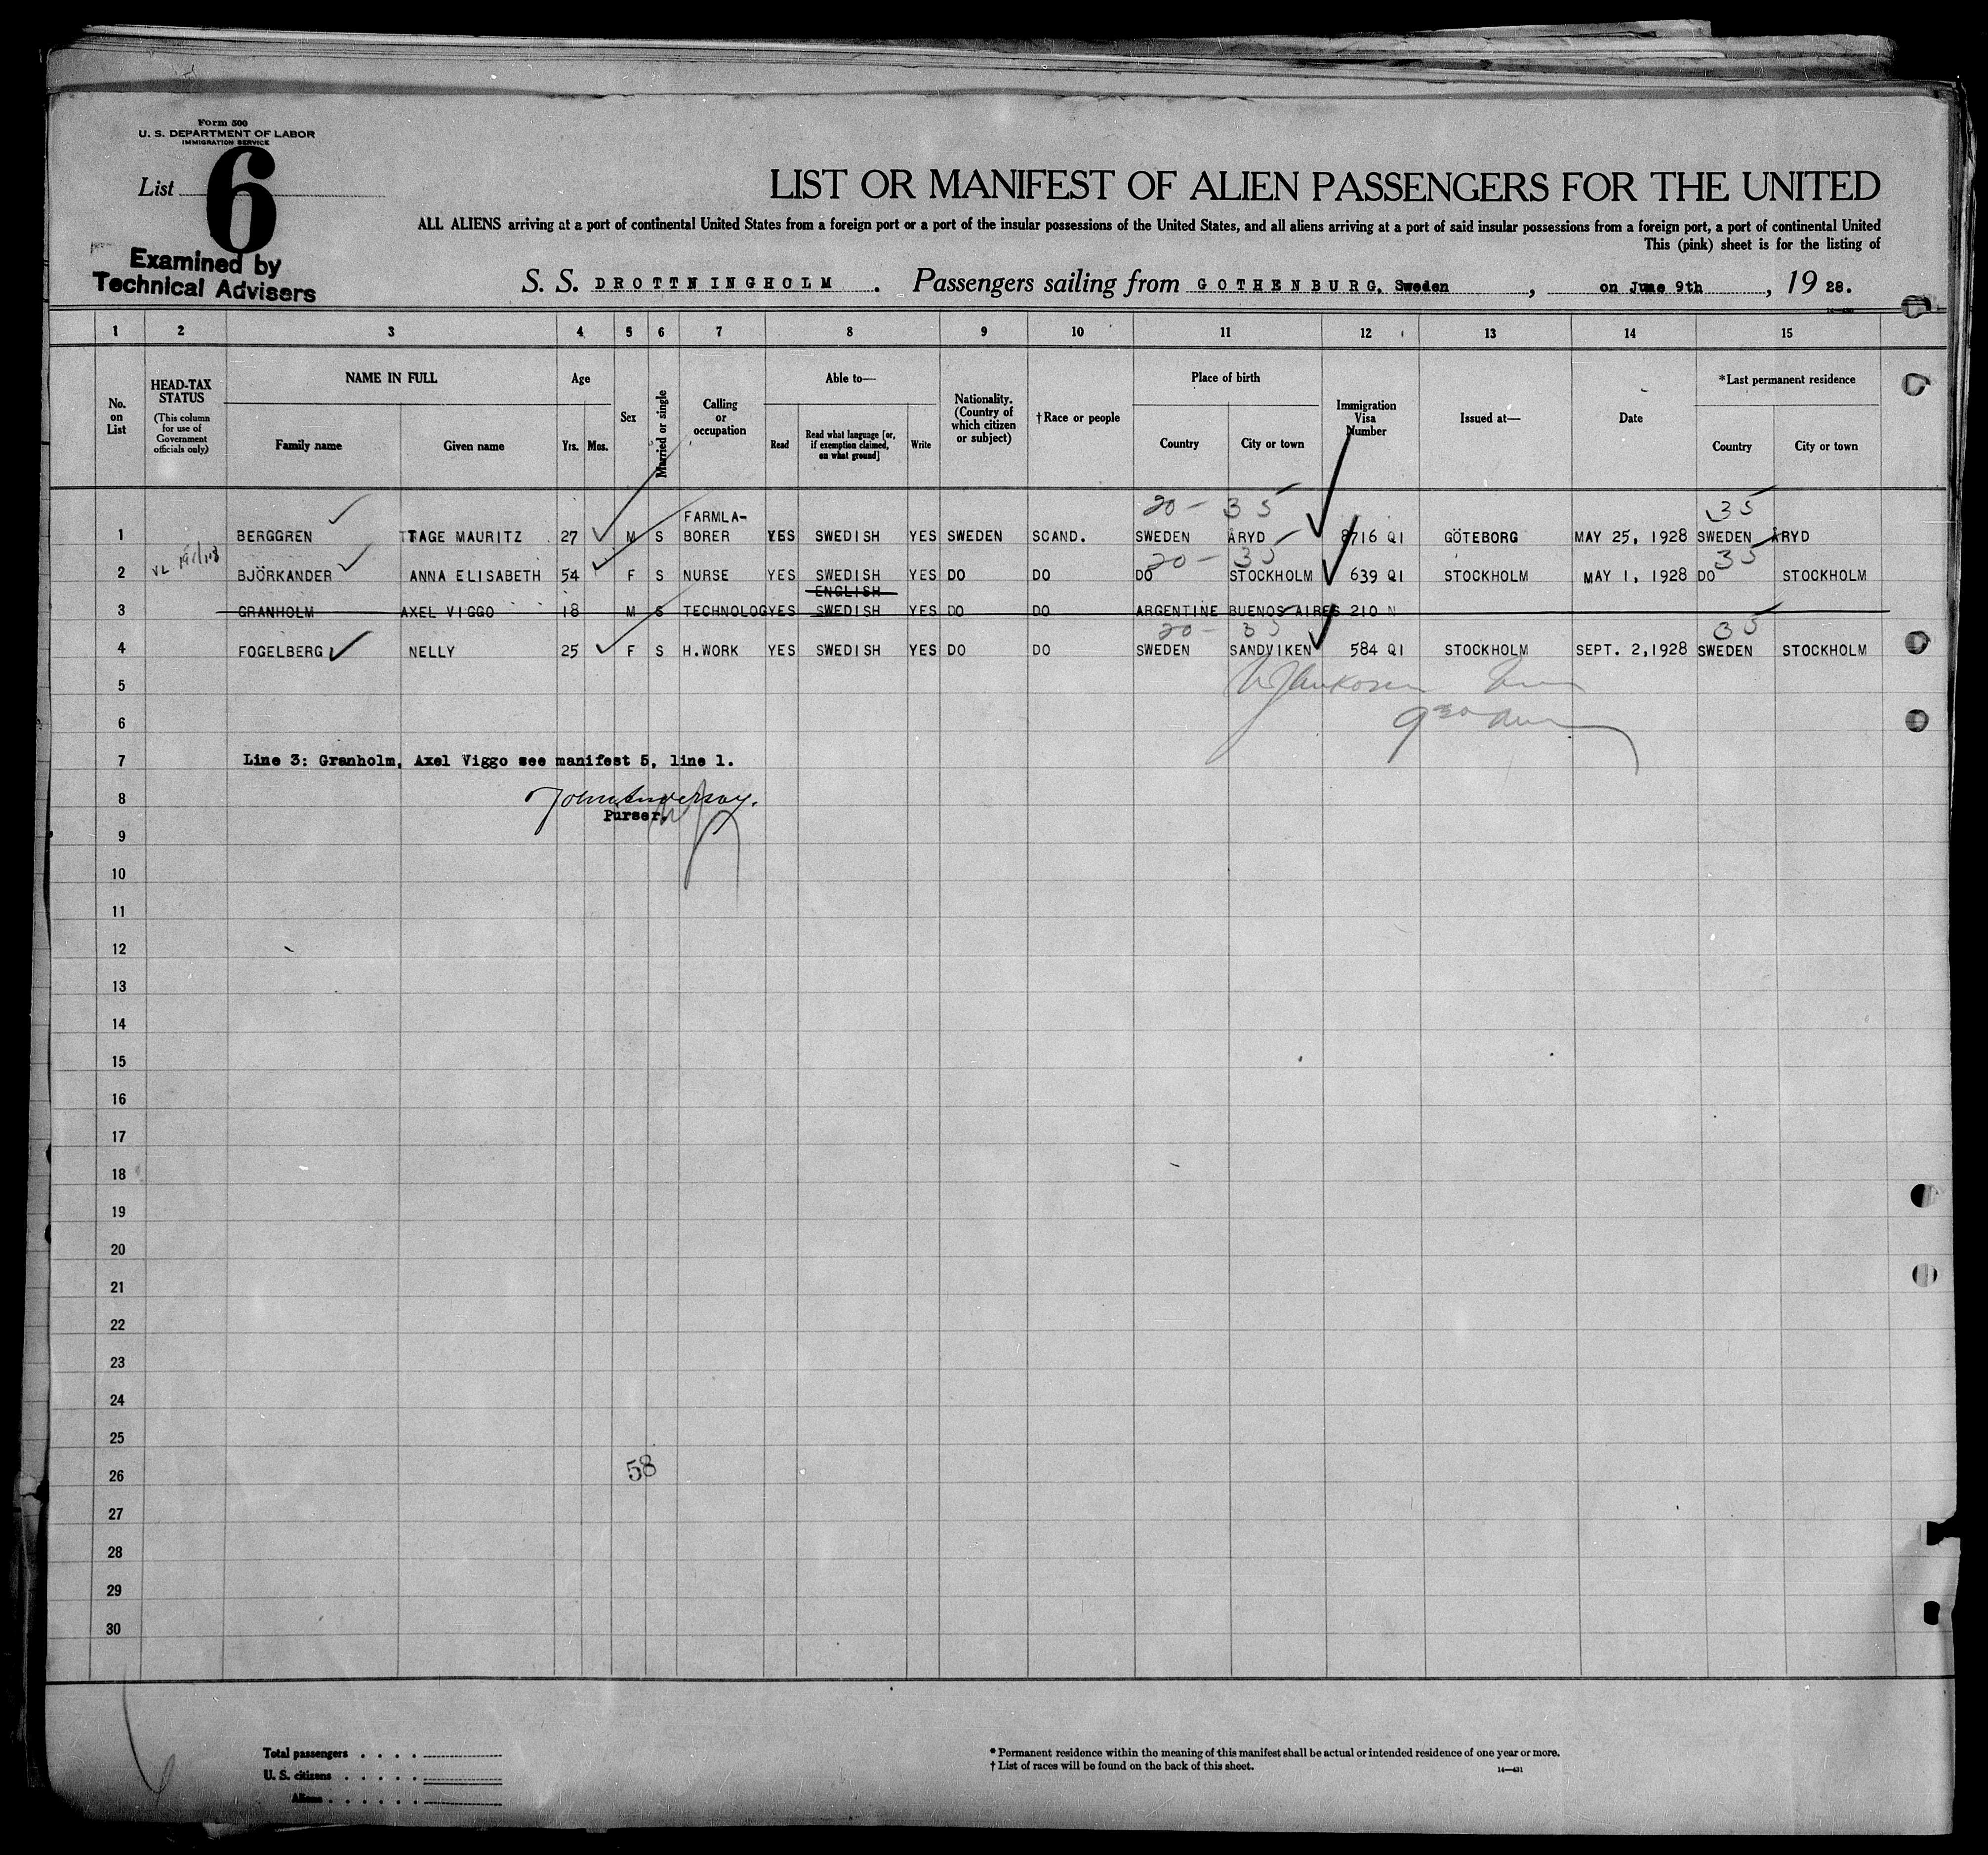 Form 500
U. S. DEPARTMENT OF LABOR
IMMIGRATION SERVICE
List 6
Examined by
Technical Advisers
LIST OR MANIFEST OF ALIEN PASSENGERS FOR THE UNITED
ALL ALIENS arriving at a port of continental United States from a foreign port or a port of the insular possessions of the United States, and all aliens arriving at a port of said insular possessions from a foreign port, a port of continental United
This (pink) sheet is for the listing of
S. S. DROTTNINGHOLM. Passengers sailing from GOTHENBURG, Sweden, on June 9th, 19 28.
1 2 3 4 5 6 7 8 9 10 11 12 13 14 15
No. on List
HEAD-TAX STATUS
(This column for use of Government officials only)
NAME IN FULL
Family name Given name
Age
Yrs. Mos.
Sex
Married or single
Calling or occupation
Able to—
Read Read what language [or, if exemption claimed, on what ground] Write
Nationality. (Country of which citizen or subject)
†Race or people
Place of birth
Country City or town
Immigration Visa Number
Issued at—
Date
*Last permanent residence
Country City or town
20 - 35 35
FARMLA-
1 BERGGREN TAGE MAURITZ 27 M S BORER YES SWEDISH YES SWEDEN SCAND. SWEDEN ÅRYD 8716 QI GÖTEBORG MAY 25, 1928 SWEDEN ÅRYD
20 - 35 35
2 BJÖRKANDER ANNA ELISABETH 54 F S NURSE YES SWEDISH YES DO DO DO STOCKHOLM 639 QI STOCKHOLM MAY 1, 1928 DO STOCKHOLM
ENGLISH
3 GRANHOLM AXEL VIGGO 18 M S TECHNOLOG YES SWEDISH YES DO DO ARGENTINE BUENOS AIRES 210 N
20 - 35 35
4 FOGELBERG NELLY 25 F S H.WORK YES SWEDISH YES DO DO SWEDEN SANDVIKEN 584 QI STOCKHOLM SEPT. 2,1928 SWEDEN STOCKHOLM
5
6
7 Line 3: Granholm, Axel Viggo see manifest 5, line 1.
8
Purser.
9
10
11
12
13
14
15
16
17
18
19
20
21
22
23
24
25
58
26
27
28
29
30
Total passengers
U. S. citizens
Aliens
* Permanent residence within the meaning of this manifest shall be actual or intended residence of one year or more.
† List of races will be found on the back of this sheet.
14—431